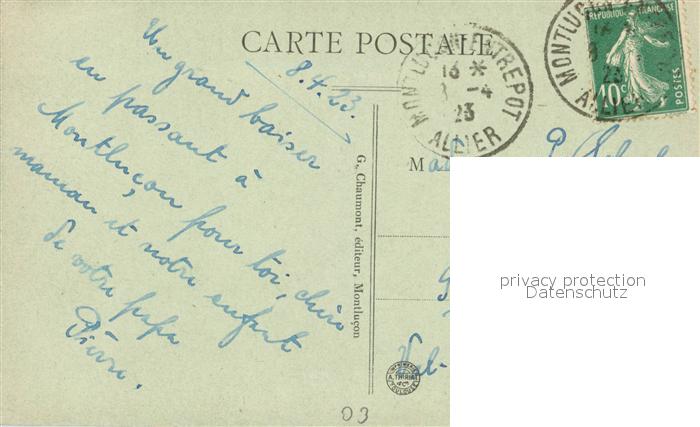 CARTE POSTALE
8.4.23.
Un grand baiser
en passant à
Montluçon pour toi, chère
maman et notre enfant
de votre papa
Pierre.
G. Chaumont, éditeur, Montluçon
MONTLUÇON ENTREPOT
13 *
-4
23
ALLIER
REPUBLIQUE FRANÇAISE
10c
POSTES
MONTLUÇON
23
ALLIER
P.
Val-
IMPRIMERIE
A. THIRIAT
& Cie
TOULOUSE
03
privacy protection
Datenschutz